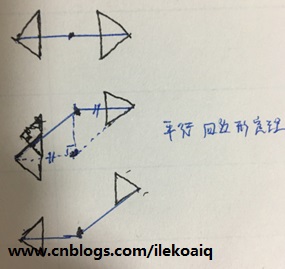 平行四边形定理
www.cnblogs.com/ilekoaiq